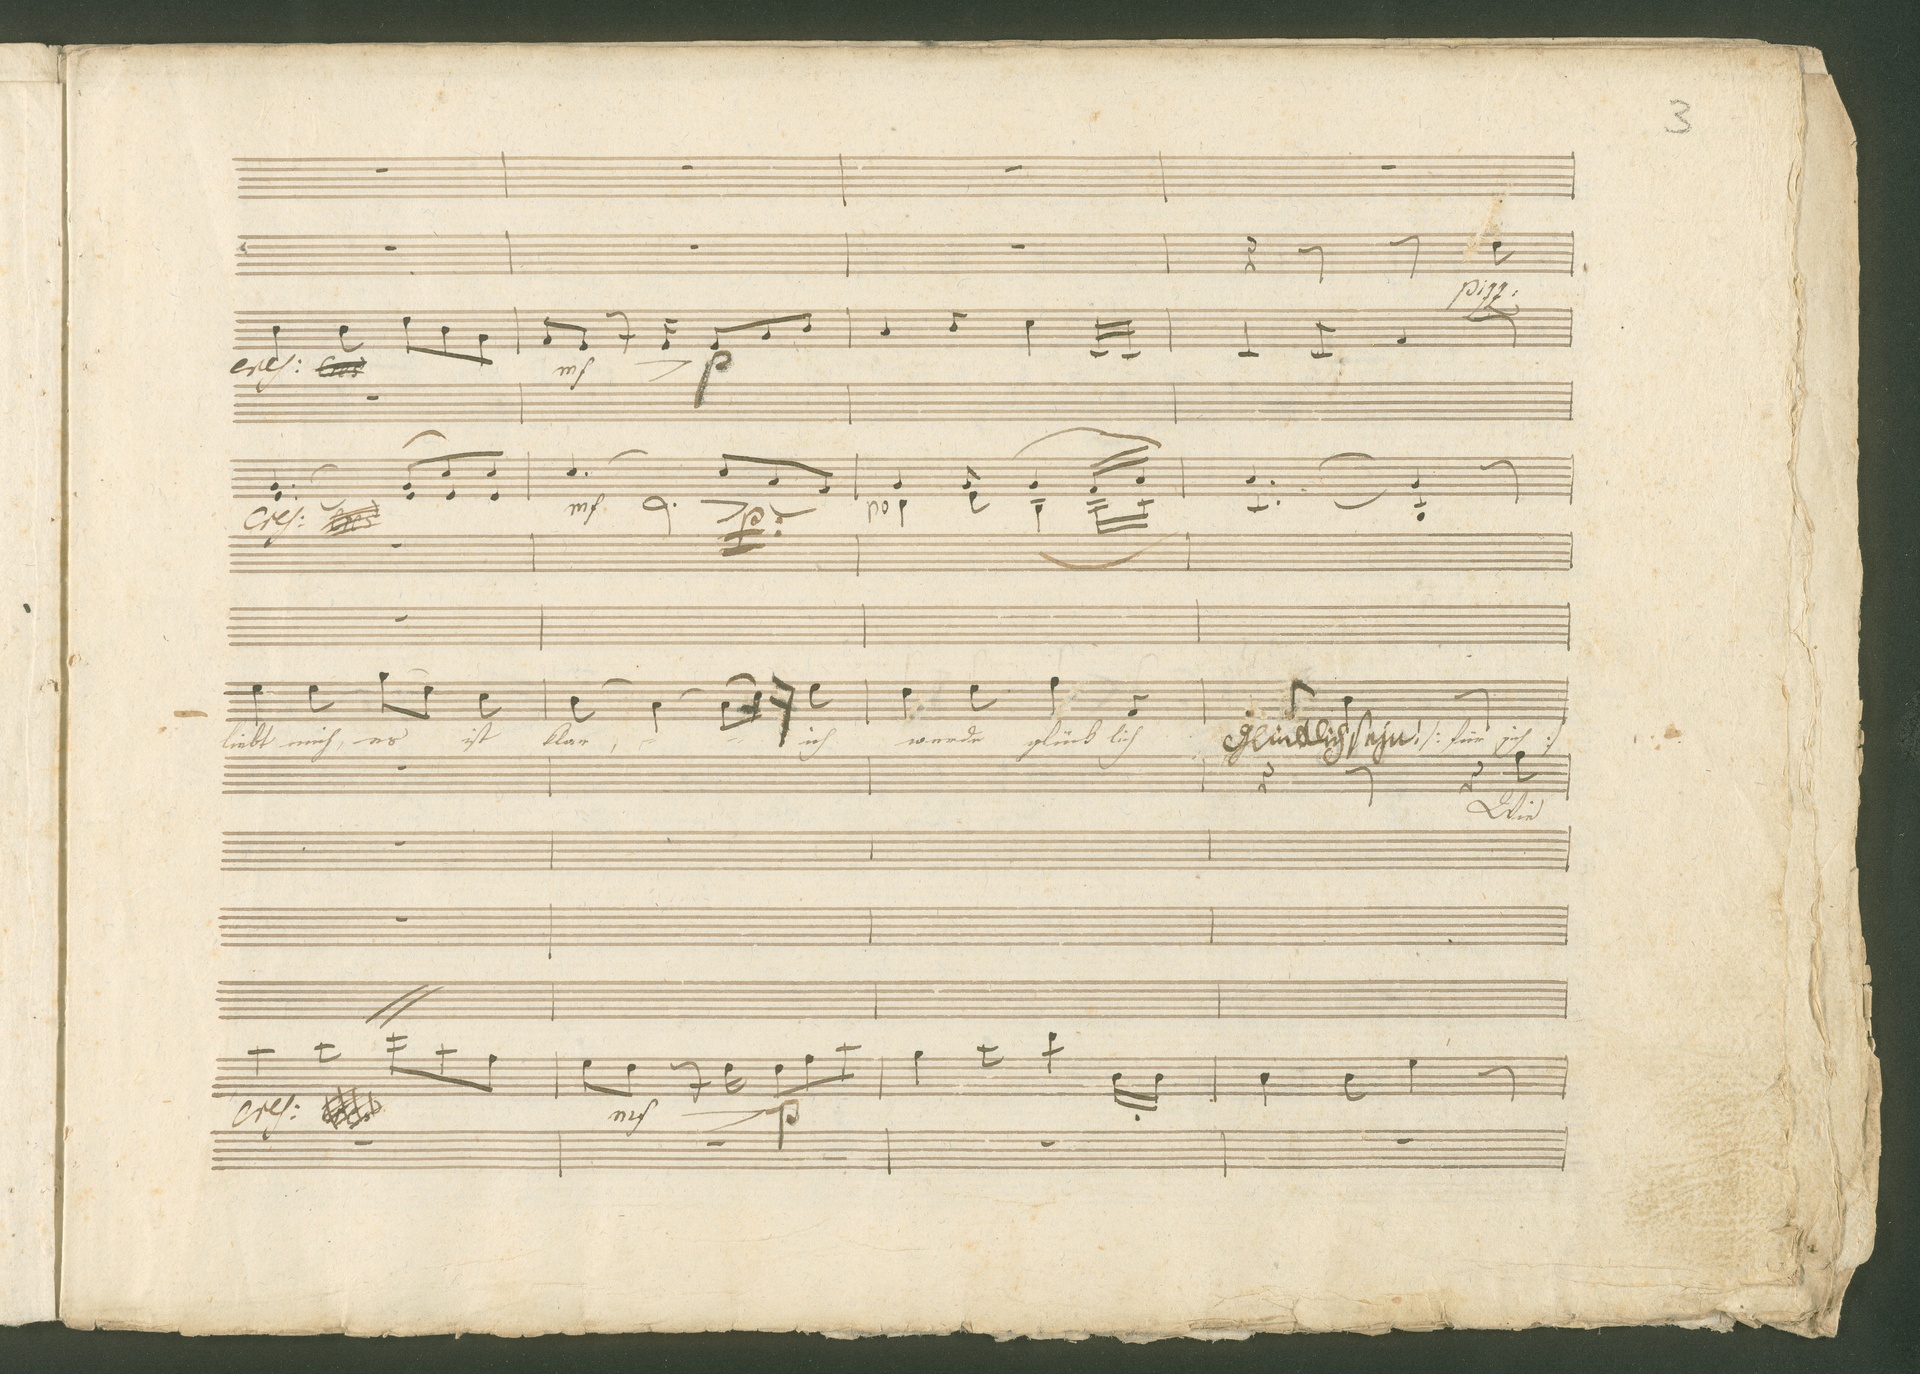 3
pizz:
cres:
mf p
cres:
mf
liebt mich, es ist klar, ich werde glück lich glücklich seÿn! /: für sich :/
Wie
cres:
mf p